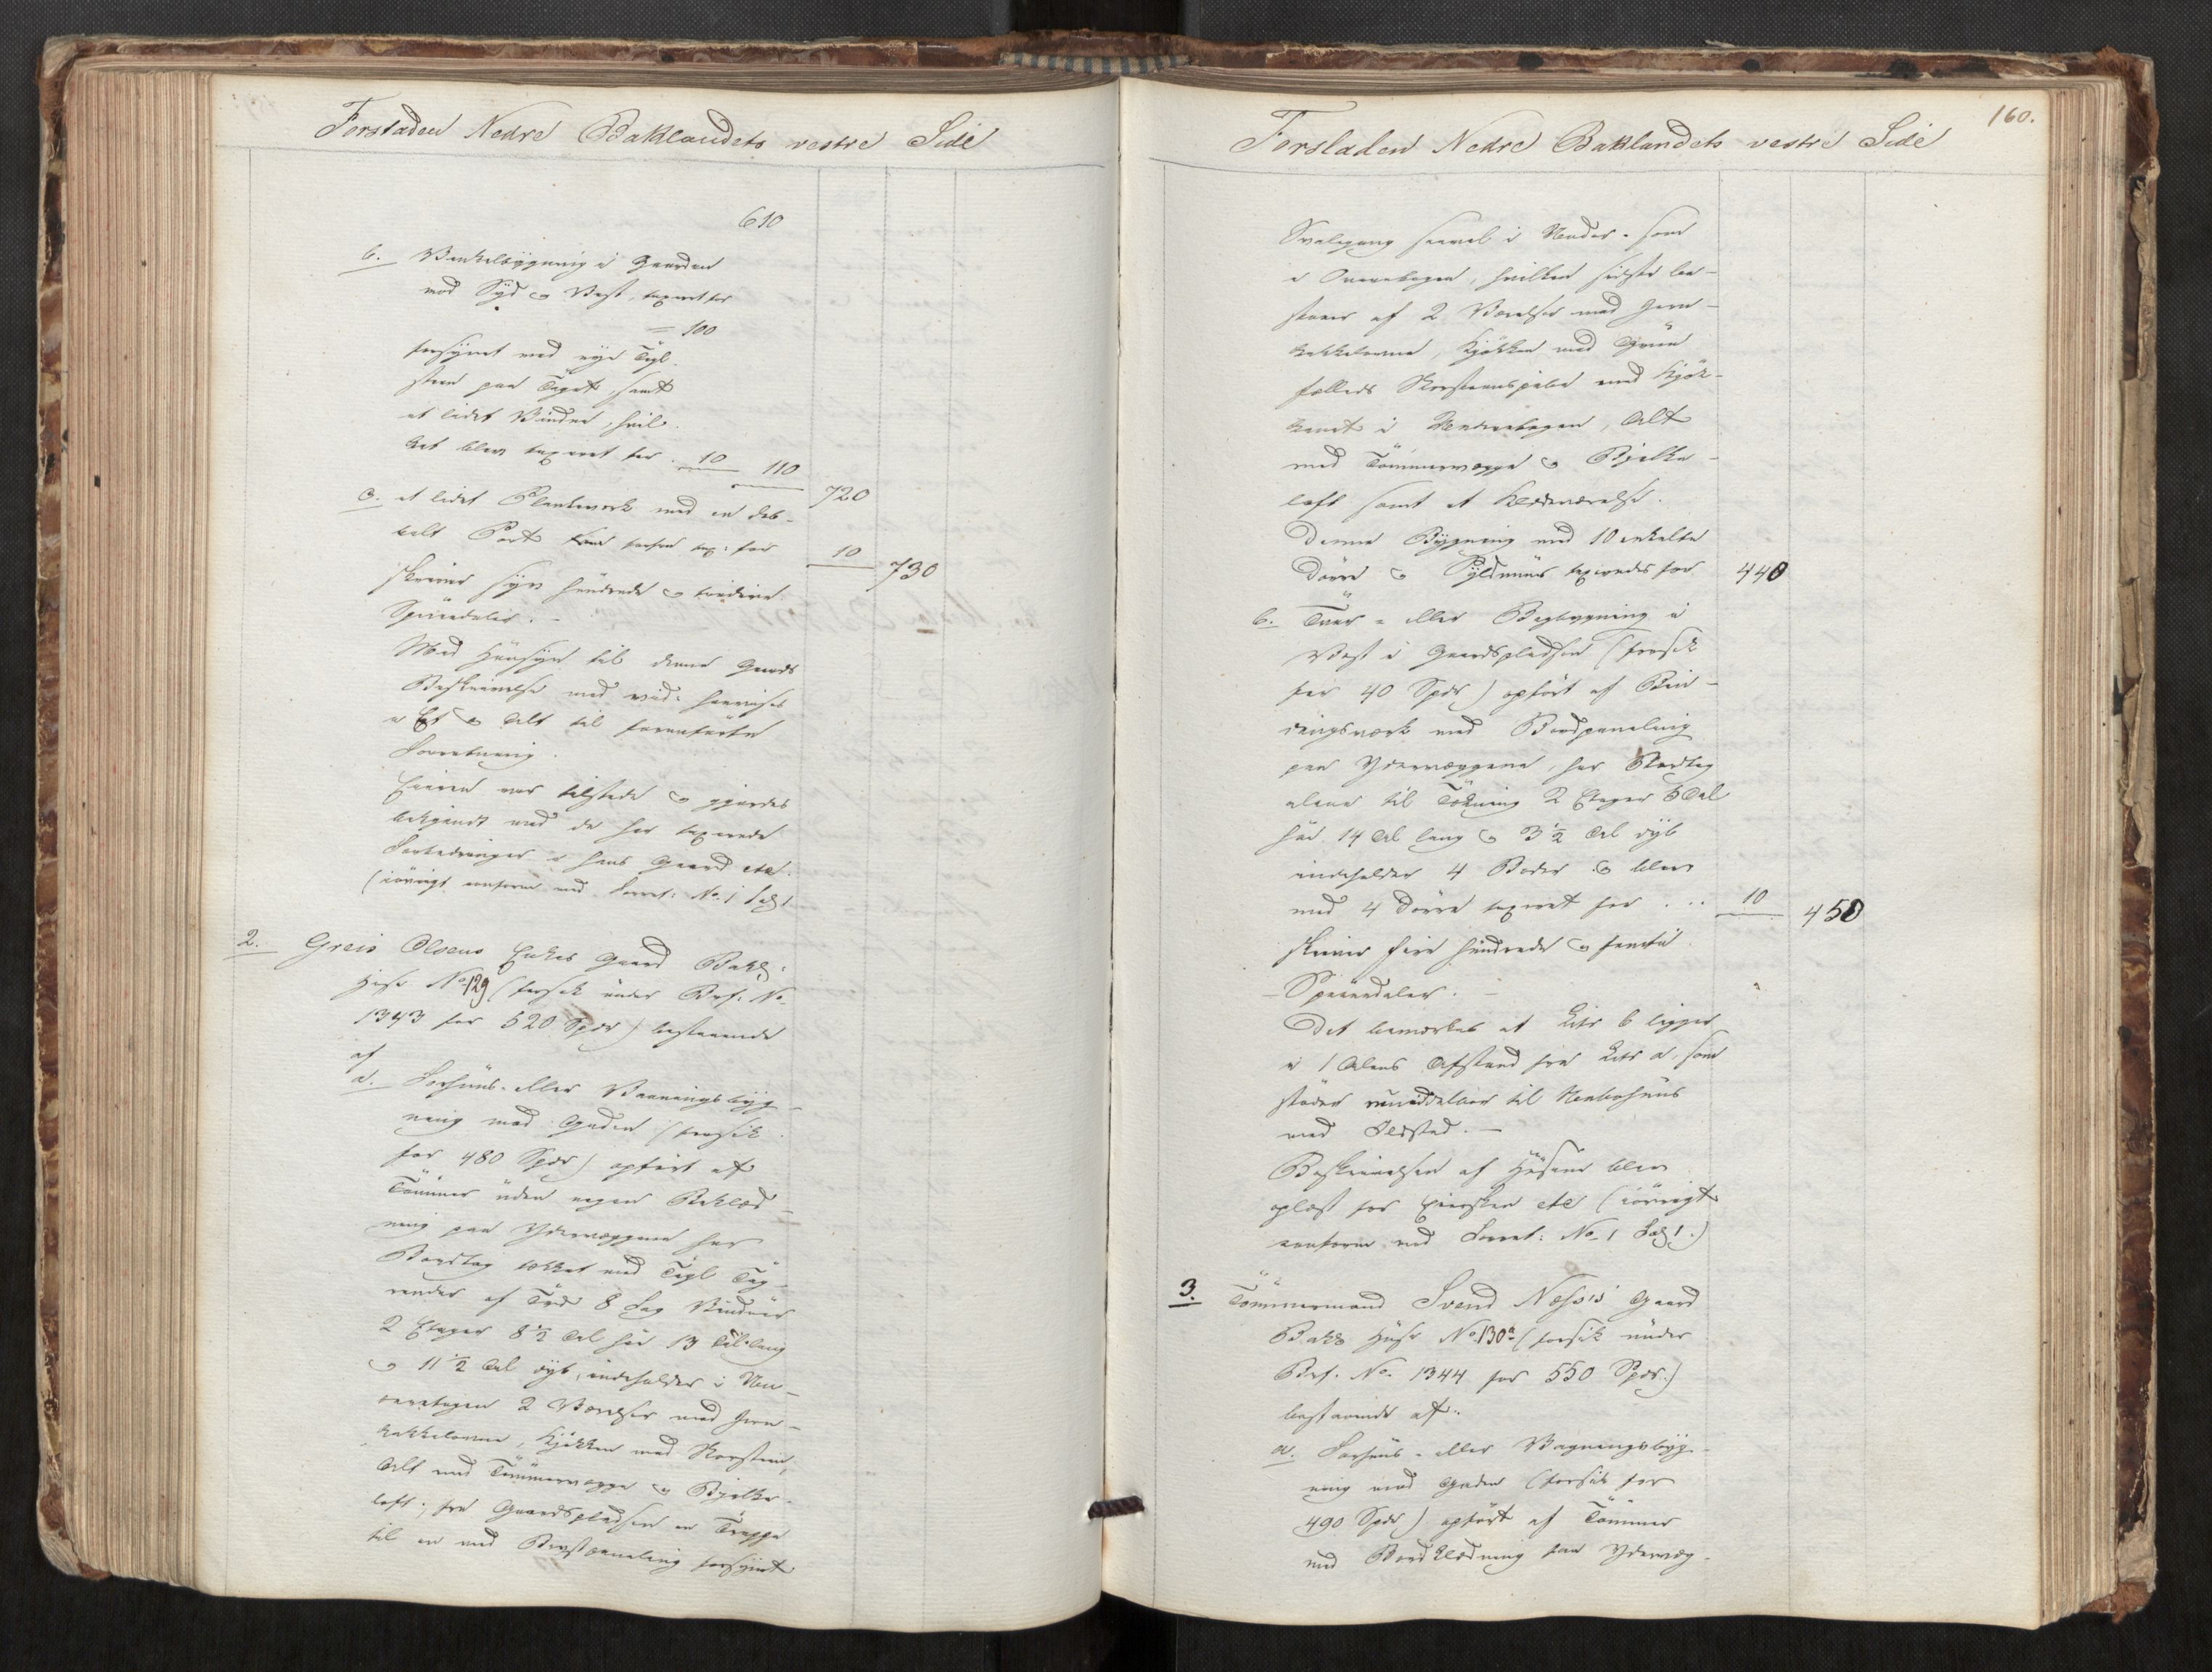 Forstaden Nedre Baklandets vestre Side
610
b. Vinkelbÿgning i Gaarden
mod Sÿd & Vest, taxeret for
= 100
forsÿnet med nye Tegl-
steen paa Taget, samt
et lidet Vindue, hvil-
ket blev taxeret for . 10 110
720
c. et lidet Plankeverk med en dob-
belt Port tax: for 10
730
skriver sÿv hundrede & tredive
Speciedaler. -
Med Hensÿn til denne Gaards
Beskrivelse med vid: henvises
i Et & Alt til foranførte
Forretning.
Eieren var tilstede & gjordes
bekjendt med de her taxerede
Forbedringer i hans Gaard etc.
(iøvrigt conform med Forret: No. 1 Fol 1
2. Greis Olsens Enkes Gaard Bakl:
Huse No 129 (forsik under Brf. No.
1343 for 520 Spdr) bestaaende
af
a. Forhuus- eller Vaaningsbÿg-
ning mod Gaden (forsik
for 480 Spdr) opført af
Tømmer uden nogen Beklæd-
ning paa Ydervæggene har
Bordtag tækket med Tegl Tag-
render af Træ 8 Fag Vinduer
2 Etager 8½ Al høi 13 Al lang
& 11½ Al dÿb, indeholder i Un-
deretagen 2 Værelser med Jern-
kakkelovne, Kjøkken med Skorsteen,
Alt med Tømmervægge & Bjelke-
loft; fra Gaardspladsen en Trappe
til en med Brystpaneling forsÿnet
160.
Forstaden Nedre Baklandets vestre Side
Svalegang saavel i Under- som
i Overetagen, hvilken sidste be-
staaer af 2 Værelser med Jern-
kakkelovne, Kjøkken med Gruue
fælleds Skorsteenspibe med Kjøk-
kenet i Underetagen, Alt
med Tømmervægge & Bjelke-
loft samt et Klædeværelse.
Denne Bygning med 10 enkelte
Dørre & Fÿldmuur taxeredes for 440
b. Tver- eller Bagbygning i
Vest i Gaardspladsen (forsik
for 40 Spdr) opført af Bin-
dingsværk med Bordpaneling
paa Ydervæggene, har Bordtag
alene til Tækning 2 Etager 5 Al
høi 14 Al lang & 3½ Al dÿb
indeholder 4 Boder & blev
med 4 Dørre taxeret for . . . 10
450
skriver fire hundrede & femti
Speciedaler. -
Det bemærkes at Litr b ligger
i 1 Alens Afstand fra Litr a, som
støder umiddelbar til Nabohuus
med Ildsted. -
Beskrivelsen af Husene blev
oplæst for Eiersken etc (iøvrigt
conform med Forret: No. 1 Fol 1.)
3. Tømmermand Svend Næss's Gaard
Bakls Huse No. 130a (forsik under
Brf. No. 1344 for 550 Spdr.)
bestaaende af:
a. Forhuus- eller Vaaningsbÿg-
ning mod Gaden (forsik for
490 Spdr) opført af Tømmer
med Bordklædning paa Ydervæg-